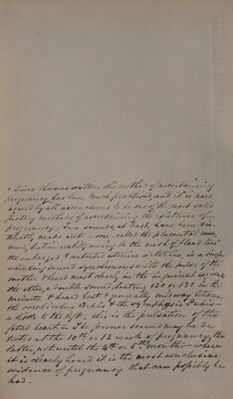 + Since the above written this method of ascertaining
pregnancy has been much practised, and it is now
agreed by all accoucheurs to be one of the most satis
factory methods of ascertaining the existence of
pregnancy. Two sounds, at least, have been dis
tinctly made out — one called the placental mur
mur, but in reality owing to the rush of blood thro'
the enlarged & uterine arteries is a single
whizzing sound synchronous with the pulse of the
mother & heard most clearly in the inguinal region,
the other, a double sound, beating 120 or 130 in the
minute & heard best & generally midway between
the umbilicus & the symphysis pubis
a little to the left, this is the pulsation of the
fœtal heart — The former sound may be de
tected at the 10th or 12 week of pregnancy, the
latter not until the 4th or 5th month — where
it is clearly heard it is the most conclusive
evidence of pregnancy that can possibly be
had.